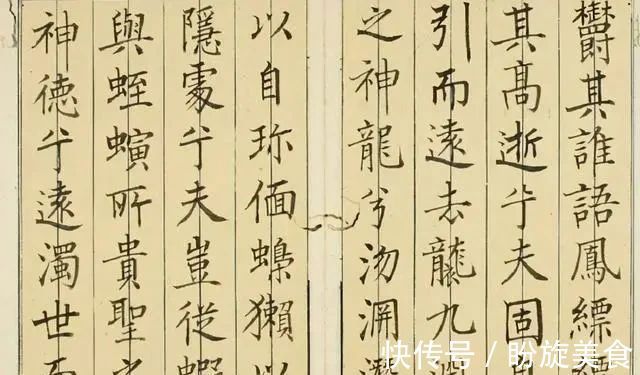 欝其誰語鳳縹
其髙逝兮夫固
引而遠去襲九
之神龍兮沕淵
以自珍偭蟂獺以
隱處兮夫豈從蝦
與蛭螾所貴聖之
神德兮遠濁世而
快传号 / 盼旋美食